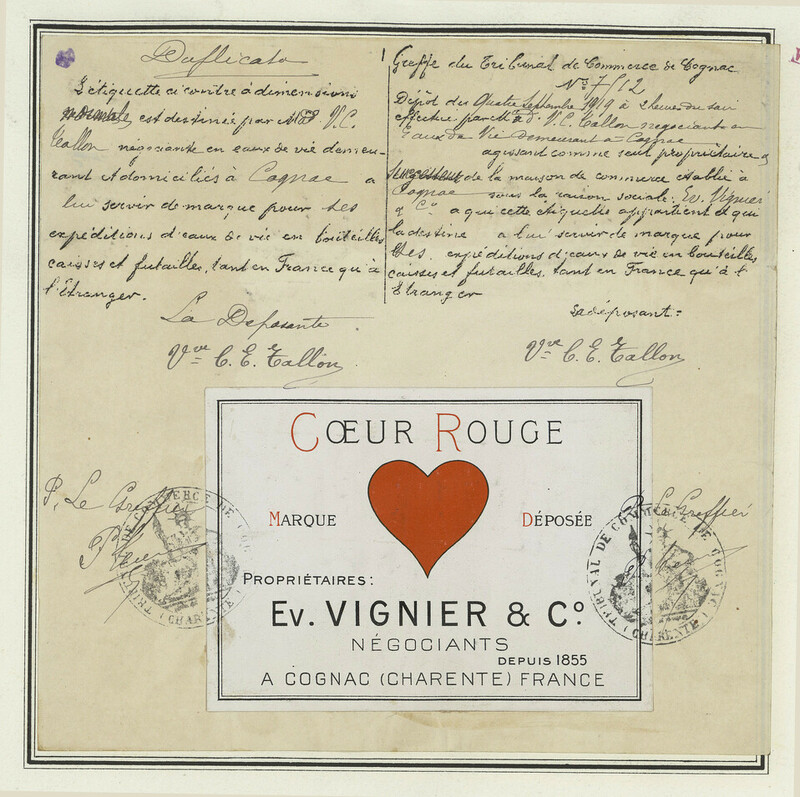 Duplicata
L'étiquette ci contre à dimensions
normales est destinée par V.C.
Tallon négociante en eaux de vie demeu-
rant et domiciliés à Cognac a
lui servir de marque pour ses
expéditions d'eaux de vie en bouteilles
caisses et futailles, tant en France qu'à
l'Etranger.
La Déposante
Vve C. E. Tallon
Greffe du Tribunal de Commerce de Cognac
No 7/12
Dépôt du Quatre Septembre 1919 à 2 heures du soir
effectué par V.C. Tallon négociante en
Eaux de Vie demeurant a Cognac
agissant comme seul propriétaire
Successeur de la maison de commerce établie à
Cognac sous la raison sociale: Ev. Vignier
& Co a qui cette étiquette appartient et qui
la destine a lui servir de marque pour
ses expéditions d'eaux de vie en bouteilles
caisses et futailles, tant en France qu'à l'
Etranger
déposant =
Vve C. E. Tallon
CŒUR ROUGE
MARQUE DÉPOSÉE
PROPRIÉTAIRES:
EV. VIGNIER & Co
NÉGOCIANTS
DEPUIS 1855
A COGNAC (CHARENTE) FRANCE
P. Le Greffier
P. Le Greffier
TRIBUNAL DE COMMERCE DE COGNAC
(CHARENTE)
TRIBUNAL DE COMMERCE DE COGNAC
(CHARENTE)